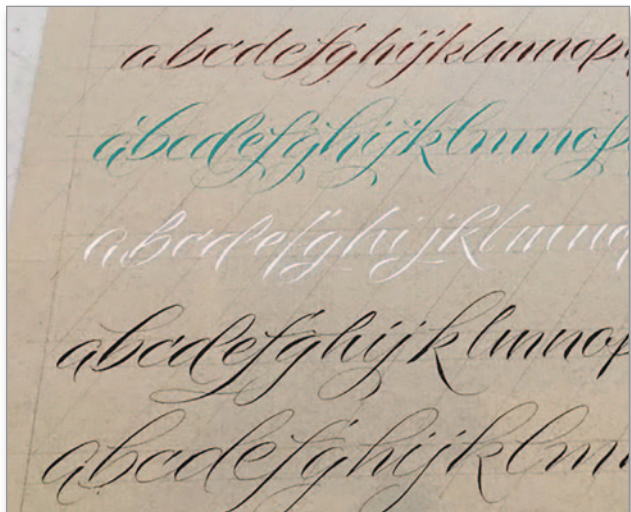 abcdefghijklmnop
abcdefghijklmnop
abcdefghijklmno
abcdefghijklmnop
abcdefghijklm